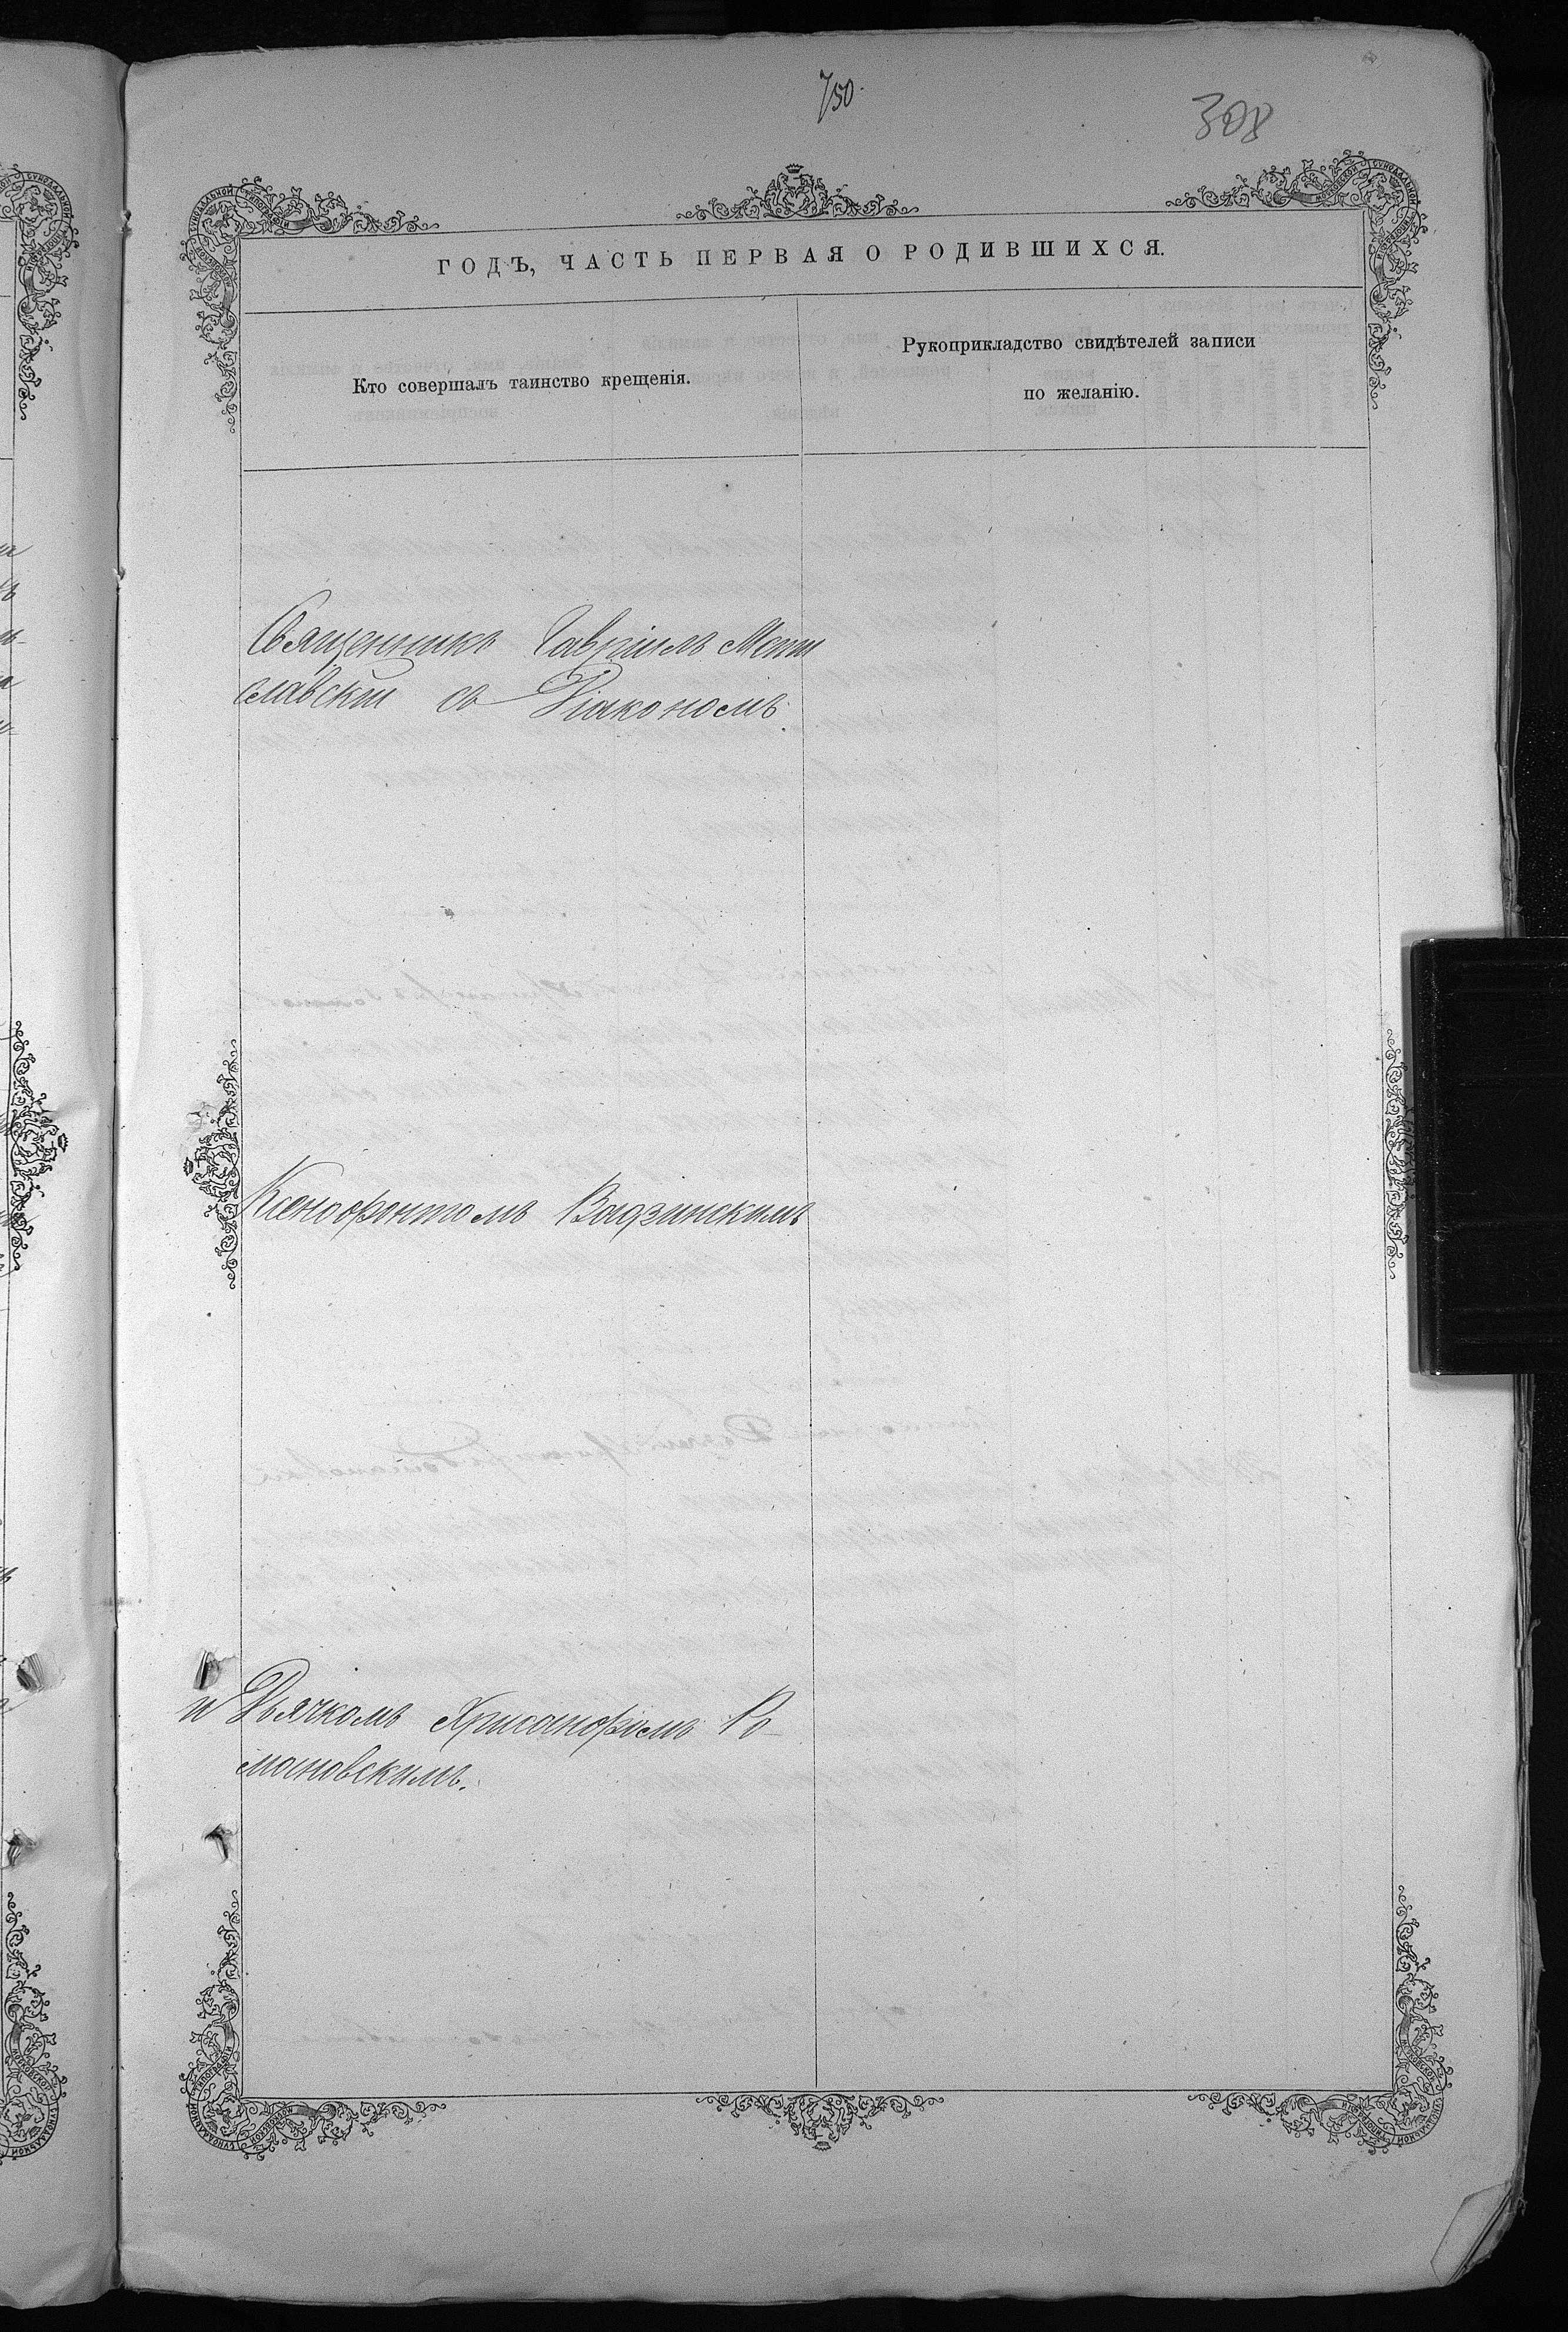 750.
308
ГОДЪ, ЧАСТЬ ПЕРВАЯ О РОДИВШИХСЯ.
Кто совершалъ таинство крещенія.
Рукоприкладство свидѣтелей записи
по желанію.
Священникъ Гавріилъ Мсти
славскій съ Діакономъ
Ксенофонтомъ
и Дьячкомъ Хрисанфомъ Ро-
мановскимъ.